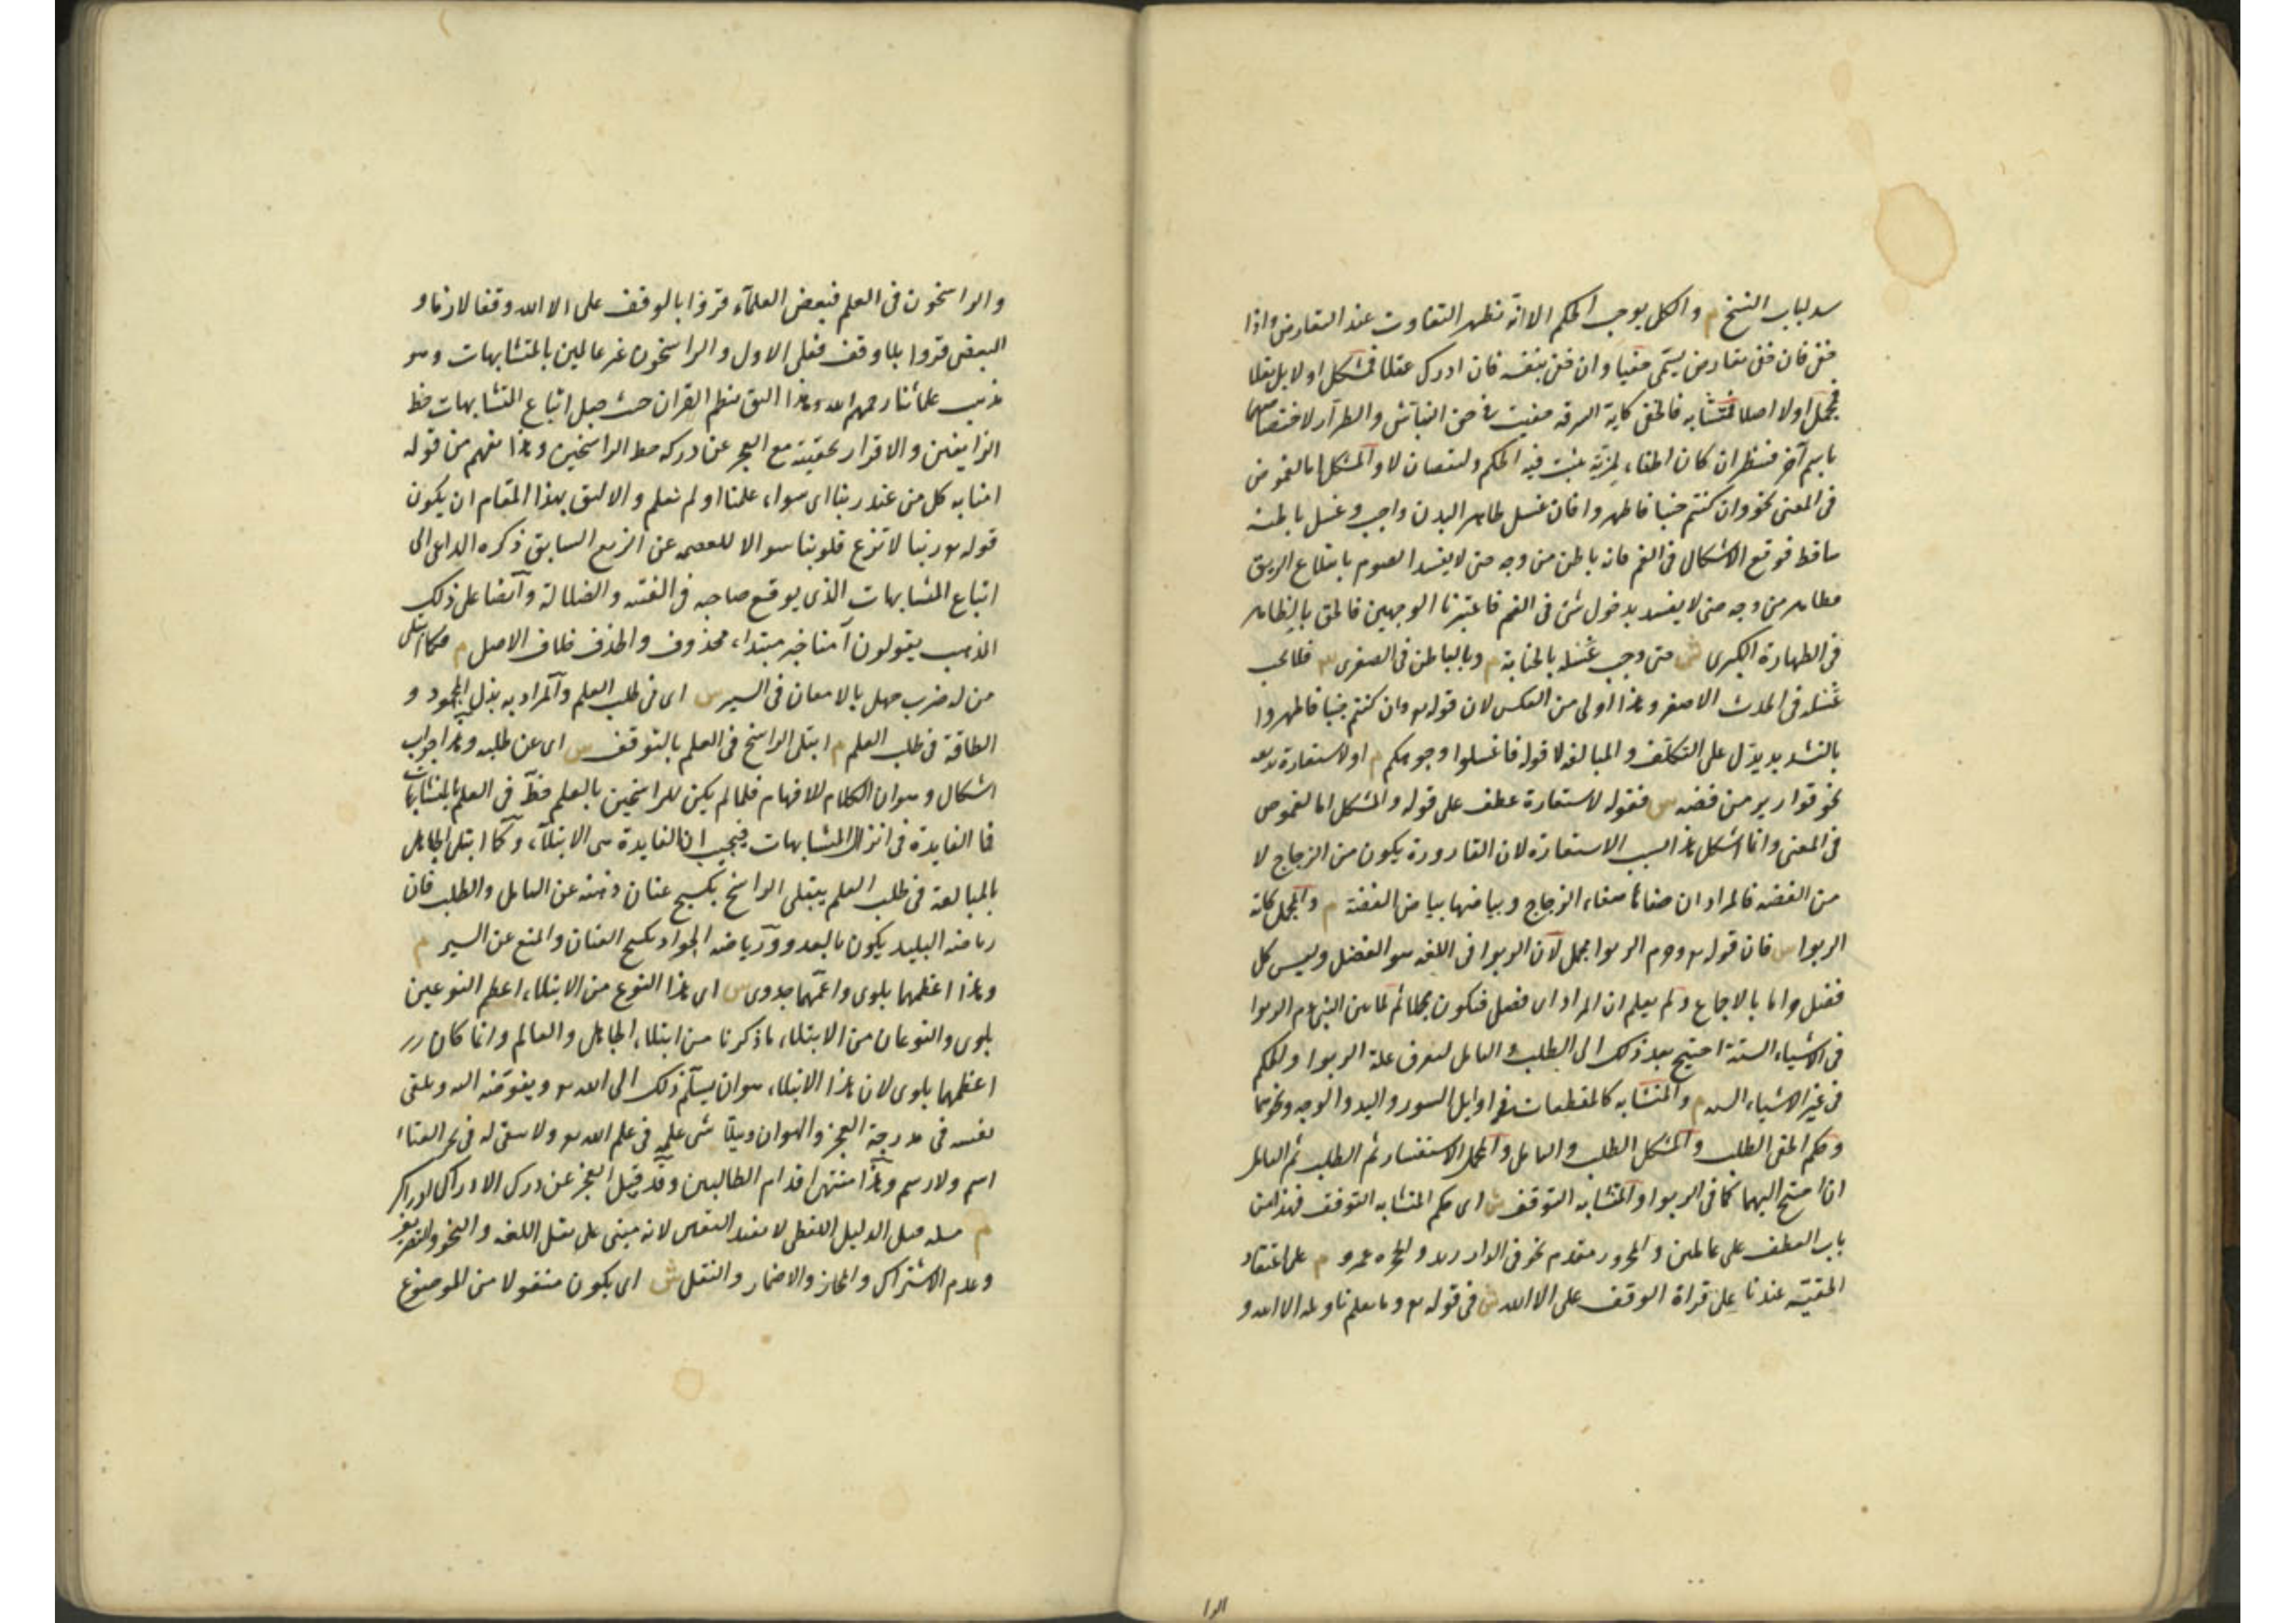 سد لباب النسخ م والكل يوجب الحكم الا انه تظهر التفاوت عند التعارض واذا
خفى فان خفى بعارض يسمى خفيا وان خفى بنفسه فان ادرك عقلا فمشكل او لا بل نقلا
فمجمل او لا اصلا فمتشابه فالخفى كاية السرقة خفيت فى حق النباش والطرار لاختصاصهما
باسم آخر فينظر ان كان الخفاء لمزية يثبت فيه الحكم ولنقصان لا والمشكل اما لغموض
فى المعنى نحو وان كنتم جنبا فاطهروا فان غسل ظاهر البدن واجب وغسل باطنه
ساقط فوقع الاشكال فى الفم فانه باطن من وجه حتى لا يفسد الصوم بابتلاع الريق
وظاهر من وجه حتى لا يفسد بدخول شئ فى الفم فاعتبرنا الوجهين فالحق بالظاهر
فى الطهارة الكبرى ش حتى وجب غسله بالجنابة م وبالباطن فى الصغرى س فلا يجب
غسله فى الحدث الاصغر وهذا اولى من العكس لان قوله تع وان كنتم جنبا فاطهروا
بالتشديد يدل على التكلف والمبالغة لا قوله فاغسلوا وجوهكم م او لاستعارة بديعة
نحو قوارير من فضه س فقوله لاستعارة عطف على قوله والمشكل اما لغموض
فى المعنى وانما اشكل هذا لسبب الاستعارة لان القارورة يكون من الزجاج لا
من الفضه فالمراد ان صفائها صفاء الزجاج وبياضها بياض الفضة م والمجمل كاية
الربوا س فان قوله تع وحرم الربوا مجمل لان الربوا فى اللغه هو الفضل وليس كل
فضل حراما بالاجماع ولم يعلم ان المراد اى فضل فيكون مجملا ثم لما بين النبى عم الربوا
فى الاشياء الستة احتيج بعد ذلك الى الطلب والتامل ليعرف علة الربوا ولحكم
فى غير الاشياء السته م والمتشابه كالمقطعات فى اوايل السور واليد والوجه ونحوهما
وحكم الخفى الطلب والمشكل الطلب والتامل والمجمل الاستفسار ثم الطلب ثم التامل
ان احتيج اليهما كما فى الربوا والمتشابه التوقف ش اى حكم المتشابه التوقف فهذا من
باب العطف على عاملين والمجرور مقدم نحو فى الدار زيد والحجره عمرو م على اعتقاد
الحقيته عندنا على قراة الوقف على الا الله ش فى قوله تع وما يعلم تاويله الا الله و
الرا
والراسخون فى العلم فبعض العلمآء قروا بالوقف على الا الله وقفا لازما و
البعض قروا بلا وقف فعلى الاول والراسخون غير عالمين بالمتشابهات وهو
مذهب علمائنا رحمهم الله وهذا اليق بنظم القران حيث جعل اتباع المتشابهات حظ
الزايغين والاقرار بحقيته مع العجز عن دركه حظ الراسخين وهذا يفهم من قوله
امنا به كل من عند ربنا اى سواء علمنا او لم نعلم والاليق بهذا المقام ان يكون
قوله تع ربنا لا تزغ قلوبنا سوالا للعصمه عن الزيغ السابق ذكره الداعى الى
اتباع المتشابهات الذى يوقع صاحبه فى الفتنه والضلالة وآيضا على ذلك
المذهب يقولون آمنا خبر مبتداء محذوف والحذف خلاف الاصل م فكما ابتلى
من له ضرب جهل بالامعان فى السير س اى فى طلب العلم والمراد به بذل المجهود و
الطاقة فى طلب العلم م ابتلى الراسخ فى العلم بالتوقف س اى عن طلبه وهذا جواب
اشكال وهو ان الكلام للافهام فلما لم يكن للراسخين بالعلم حظ فى العلم بالمتشابهات
فما الفايدة فى انزال المتشابهات فيجيب ان الفايدة هى الابتلآء وكما ابتلى الجاهل
بالمبالغة فى طلب العلم يبتلى الراسخ بكبح عنان ذهنه عن التامل والطلب فان
رياضه البليد يكون بالعدو ورياضه الجواد بكبح العنان والمنع عن السير م
وهذا اعظمهما بلوى واعمهما جدوى س اى هذا النوع من الابتلاء اعظم النوعين
بلوى والنوعان من الابتلاء ما ذكرنا من ابتلاء الجاهل والعالم وانما كان
اعظمهما بلوى لان هذا الابتلاء هو ان يسلم ذلك الى الله تع ويفوضه اليه ويلقى
نفسه فى مدرجة العجز والهوان ويتلاشى علمه فى علم الله تع ولا يبقى له فى بحر الفناء
اسم ولا رسم وهذا منتهى اقدام الطالبين وقد قيل العجز عن درك الادراك ادراك
م مسله قيل الدليل اللفظى لا يفيد اليقين لانه مبنى على نقل اللغه والنحو والتصريف
وعدم الاشتراك والمجاز والاضمار والنقل ش اى يكون منقولا من الموضوع